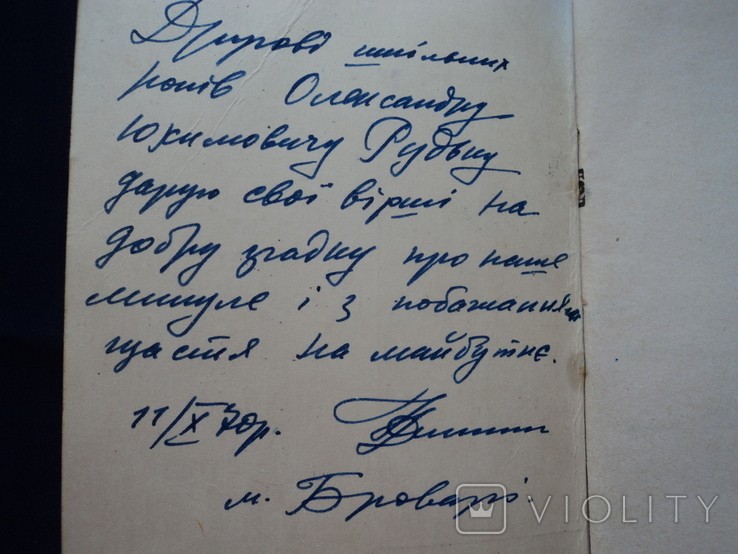 Другові шкільних
років Олександру
Юхимовичу Рудьку
дарую свої вірші на
добру згадку про наше
минуле і з побажанням
щастя на майбутнє.
11/X 70р.
м. Бровари.
VIOLITY